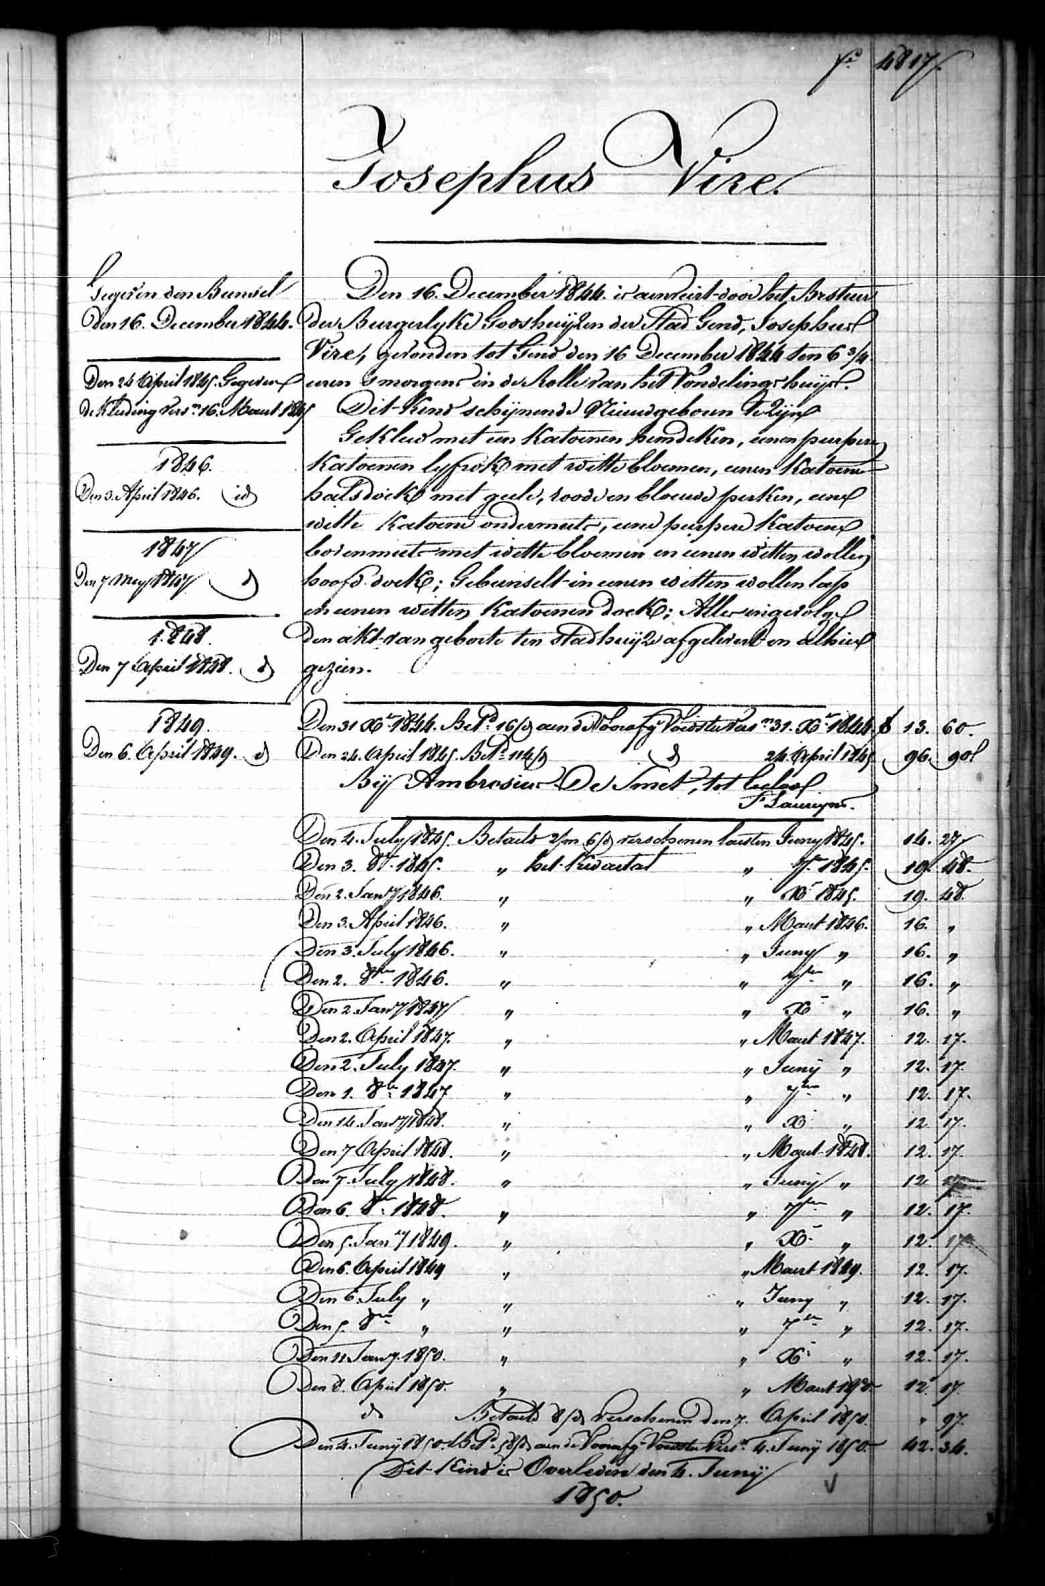 fo 4817.
Josephus Vire.
Gegeven den Bunsel
den 16. December 1844.
Den 24 April 1845. Gegeven
de Kleeding vers.n 16. Maart 1845
1846.
Den 3. April 1846. id
1847
Den 7 Mey 1847 d
1848.
Den 7 April 1848. d
1849.
Den 6. April 1849. d
Den 16. December 1844. is aenveirt door het Bestuur
der Burgerlyke Godshuijzen der Stad Gend, Josephus
Vire, gevonden tot Gend den 16 December 1844 ten 6 3/4
uren smorgens in de Rolle van het Vondelingshuijs.
Dit Kind schijnende Nieuwgeboren te Zijn
Gekleed met een Katoenen hemdeken, eenen purpere
Katoenen lyfrok met witte bloemen, eenen Katoene
halsdoek met geele, roode en blouwe perken, eene
witte Katoene ondermuts, eene purpere Katoene
bovenmuts met witte bloemen en eenen witten wollen
hoofd doek; Gebunselt in eenen witten wollen lap
en eenen witten Katoenen doek; Alles ingevolge
den akt van geboorte ten stadhuijze afgelevert en alhier
gezien.
Den 31 Xr 1844. Bet.d 16/d aen de Voorafg. Voedster vers.n 31. Xr 1844. f 13. 60.
Den 24. April 1845. Bet.d 114/d d 24. April 1845. 96. 90
Bij Ambrosius De Smet, tot Ledool
F Lauryns.
Den 4. July 1845. Betaelt 2/m 6/d verschenen laesten Juny 1845. 14. 27
Den 3. 8r 1845. " het Kwartael " 7r 1845. 19. 48.
Den 2. Jany 1846. " " Xr 1845. 19. 48
Den 3. April 1846. " " Maart 1846. 16. "
Den 3. July 1846. " " Juny " 16. "
Den 2. 8ber 1846. " " 7ber " 16. "
Den 2. Jany 1847 " " X " 16. "
Den 2. April 1847. " " Maart 1847. 12. 17.
Den 2. July 1847. " " Juny " 12. 17.
Den 1. 8br 1847 " " 7ber " 12. 17.
Den 14. Jany 1848. " " X " 12 17.
Den 7 April 1848. " " Maart 1848. 12. 17.
Den 7. July 1848. " " Juny " 12 17
Den 6. 8br 1848. " " 7ber " 12. 17.
Den 5. Jany 1849. " " X " 12. 17
Den 6. April 1849 " " Maart 1849. 12. 17.
Den 6. July " " " Juny " 12. 17.
Den 5. 8br " " " 7ber " 12. 17.
Den 11 Jany. 1850. " " Xr " 12. 17.
Den 8. April 1850. " " Maart 1850 12 17.
d Betaeld 8/d verschenen den 7. April 1850. " 97.
Den 4. Juny 1850. Bet.d 58/d aen de Voorafg. Voedster Vers.n 4. Juny 1850 42. 34.
Dit Kind is Overleden den 4. Juny
1850.